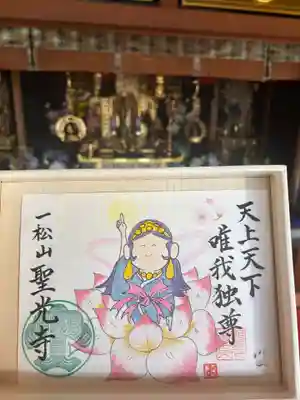 天上天下
唯我独尊
一松山 聖光寺